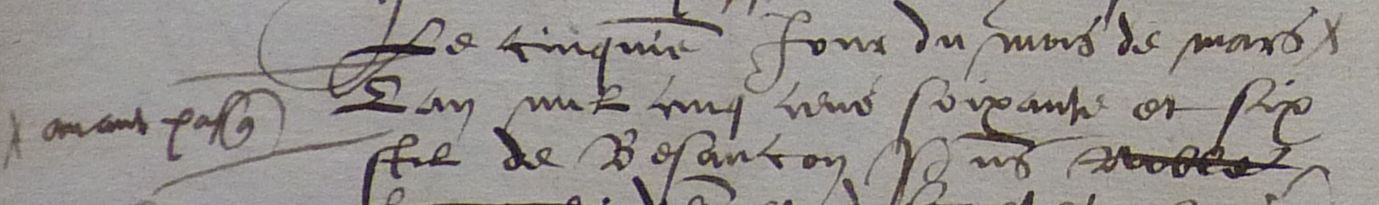 Le cinquie Jour du mois de mars
avant pasq
Lan mil cinq cens soixante et six
stil de Besancon